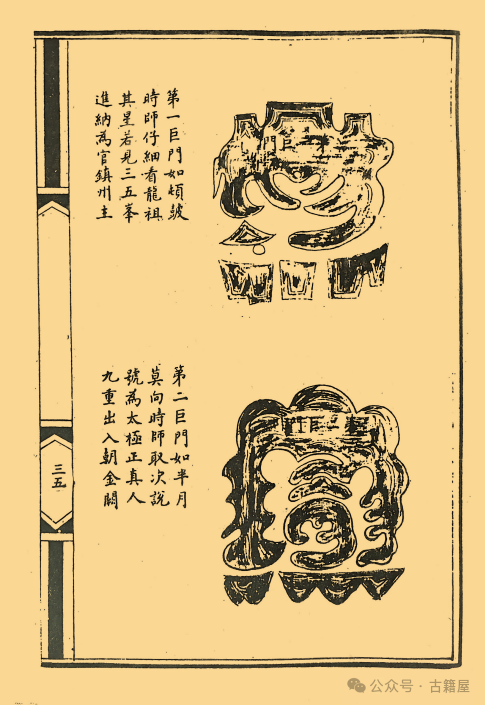 第一巨門
第一巨門如頓皷
時師仔細看龍祖
其星若見三五峯
進納為官鎮州主
第二巨門
第二巨門如半月
莫向時師取次說
號為太極正真人
九重出入朝金闕
三五
公众号 · 古籍屋